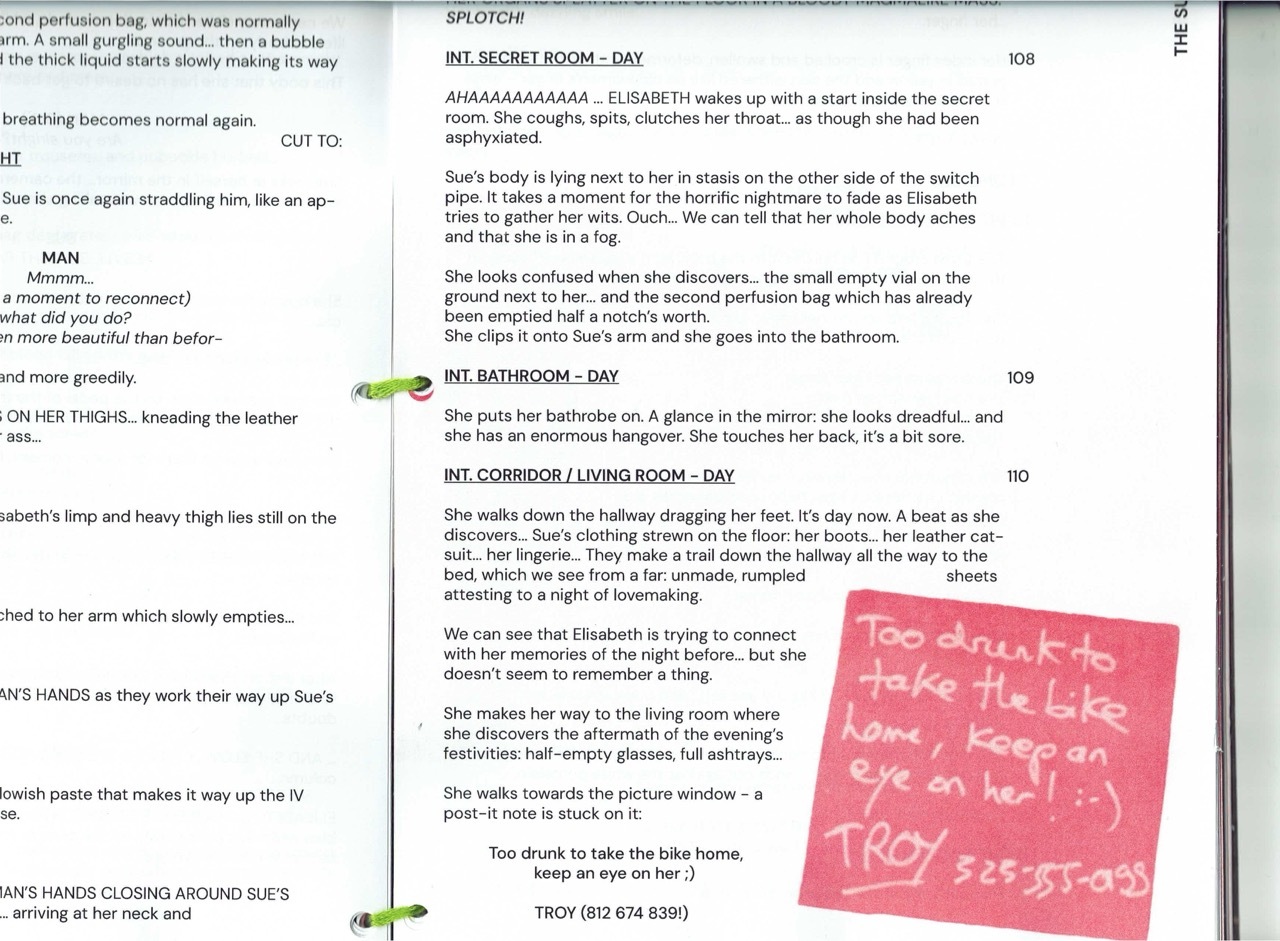 cond perfusion bag, which was normally
arm. A small gurgling sound... then a bubble
the thick liquid starts slowly making its way
breathing becomes normal again.
CUT TO:
HT
Sue is once again straddling him, like an ap-
e.
MAN
Mmmm...
a moment to reconnect)
what did you do?
en more beautiful than befor-
and more greedily.
S ON HER THIGHS... kneading the leather
ass...
sabeth's limp and heavy thigh lies still on the
ched to her arm which slowly empties...
AN'S HANDS as they work their way up Sue's
lowish paste that makes it way up the IV
se.
MAN'S HANDS CLOSING AROUND SUE'S
... arriving at her neck and
SPLOTCH!
INT. SECRET ROOM – DAY 108
AHAAAAAAAAAAA ... ELISABETH wakes up with a start inside the secret
room. She coughs, spits, clutches her throat... as though she had been
asphyxiated.
Sue's body is lying next to her in stasis on the other side of the switch
pipe. It takes a moment for the horrific nightmare to fade as Elisabeth
tries to gather her wits. Ouch... We can tell that her whole body aches
and that she is in a fog.
She looks confused when she discovers... the small empty vial on the
ground next to her... and the second perfusion bag which has already
been emptied half a notch's worth.
She clips it onto Sue's arm and she goes into the bathroom.
INT. BATHROOM – DAY 109
She puts her bathrobe on. A glance in the mirror: she looks dreadful... and
she has an enormous hangover. She touches her back, it's a bit sore.
INT. CORRIDOR / LIVING ROOM – DAY 110
She walks down the hallway dragging her feet. It's day now. A beat as she
discovers... Sue's clothing strewn on the floor: her boots... her leather cat-
suit... her lingerie... They make a trail down the hallway all the way to the
bed, which we see from a far: unmade, rumpled sheets
attesting to a night of lovemaking.
We can see that Elisabeth is trying to connect
with her memories of the night before... but she
doesn't seem to remember a thing.
She makes her way to the living room where
she discovers the aftermath of the evening's
festivities: half-empty glasses, full ashtrays...
She walks towards the picture window – a
post-it note is stuck on it:
Too drunk to take the bike home,
keep an eye on her ;)
TROY (812 674 839!)
Too drunk to
take the bike
home, keep an
eye on her! :-)
TROY 325-555-0199
THE SU